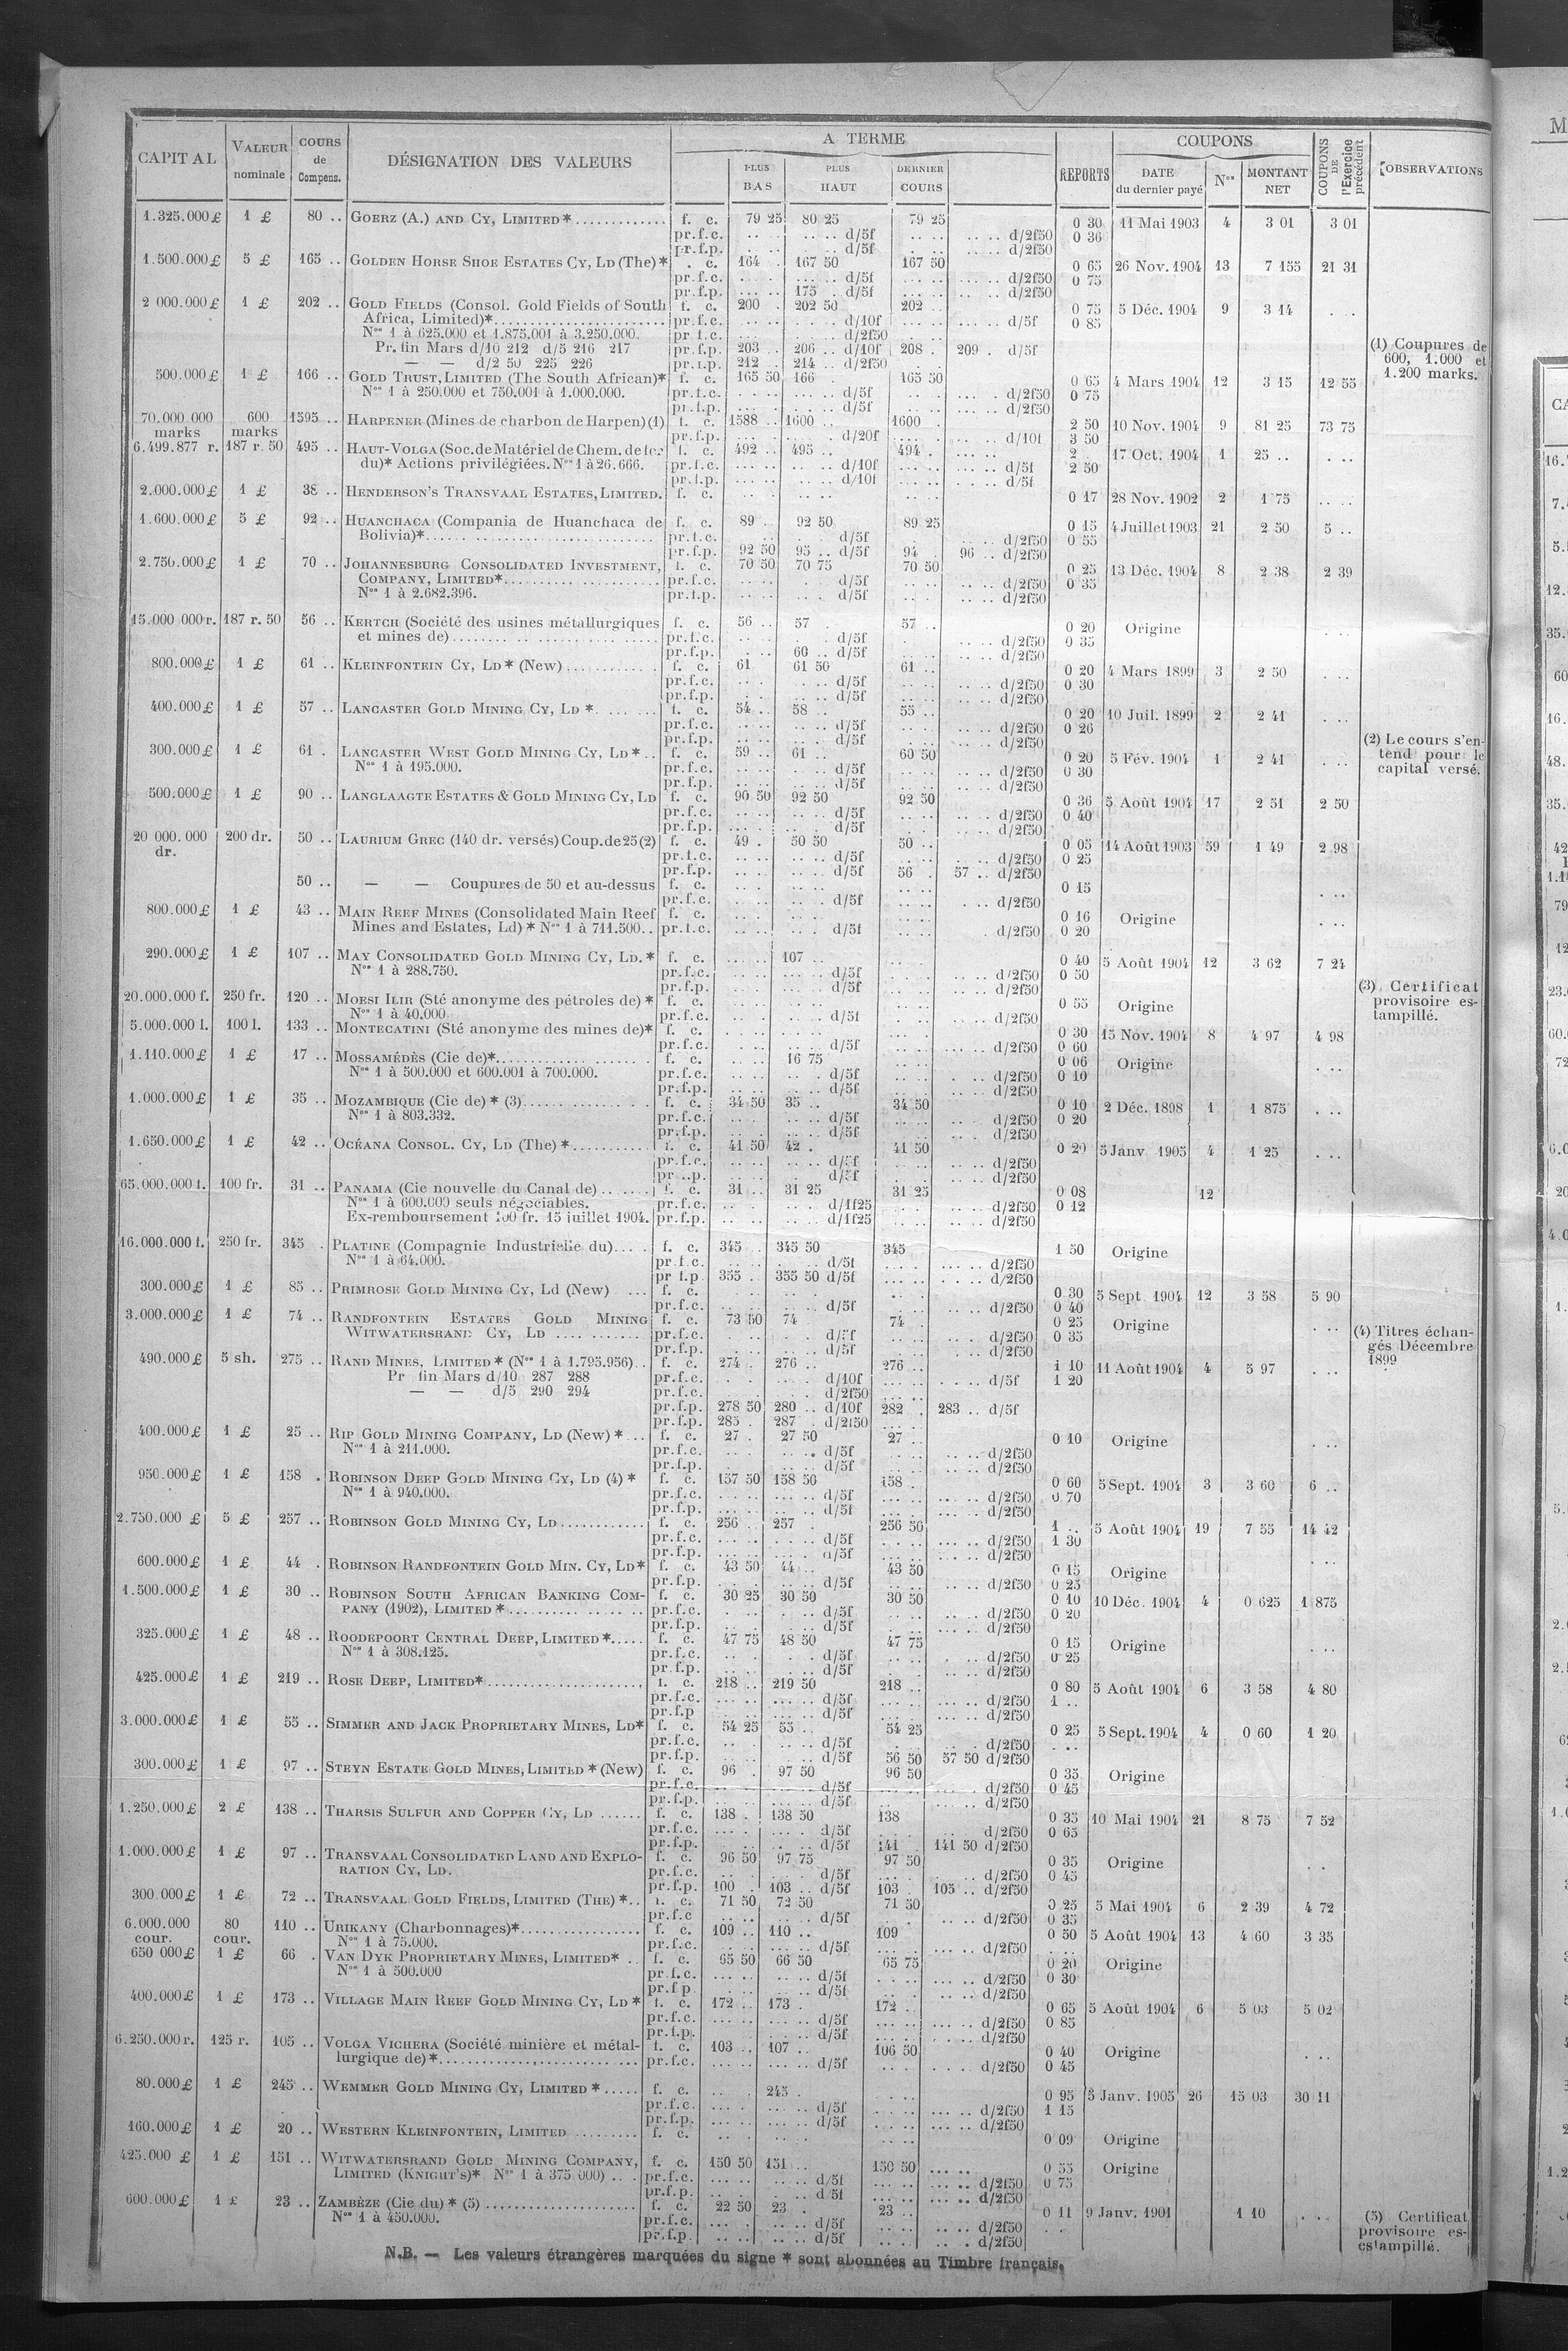 CAPITAL | VALEUR nominale | COURS de Compens. | DÉSIGNATION DES VALEURS | A TERME | REPORTS | COUPONS | COUPONS DE l'Exercice précédent | OBSERVATIONS
PLUS BAS | PLUS HAUT | DERNIER COURS | DATE du dernier payé | Nos | MONTANT NET
1.325.000 £ 1 £ 80 .. GOERZ (A.) AND CY, LIMITED * f. c. 79 25 80 25 79 25 0 30 11 Mai 1903 4 3 01 3 01
pr.f.c. d/5f d/2f50 0 36
pr.f.p. d/5f d/2f50
1.500.000 £ 5 £ 165 .. GOLDEN HORSE SHOE ESTATES CY, LD (The) * c. 164 . 167 50 167 50 0 65 26 Nov. 1904 13 7 155 21 31
pr.f.c. d/5f d/2f50 0 75
pr.f.p. 175 . d/5f d/2f50
2 000.000 £ 1 £ 202 .. GOLD FIELDS (Consol. Gold Fields of South f. c. 200 . 202 50 202 .. 0 75 5 Déc. 1904 9 3 14
Africa, Limited)* pr.f.c. d/10f d/5f 0 85
Nos 1 à 625.000 et 1.875.001 à 3.250.000. pr.f.c. d/2f50
Pr. fin Mars d/10 212 d/5 216 217 pr.f.p. 203 .. 206 .. d/10f 208 . 209 . d/5f
— — d/2 50 225 226 pr.f.p. 212 .. 214 .. d/2f50
500.000 £ 1 £ 166 .. GOLD TRUST, LIMITED (The South African)* f. c. 165 50 166 . 165 50 0 65 4 Mars 1904 12 3 15 12 55
Nos 1 à 250.000 et 750.001 à 1.000.000. pr.f.c. d/5f d/2f50 0 75
pr.f.p. d/5f d/2f50
(1) Coupures de
600, 1.000 et
1.200 marks.
70.000.000 marks 600 marks 1595 .. HARPENER (Mines de charbon de Harpen) (1) f. c. 1588 .. 1600 .. 1600 . 2 50 10 Nov. 1904 9 81 25 73 75
pr.f.p. d/20f d/10f 3 50
6.499.877 r. 187 r. 50 495 .. HAUT-VOLGA (Soc. de Matériel de Chem. de fer f. c. 492 .. 495 .. 494 . 2 . 17 Oct. 1904 1 25 ..
du)* Actions privilégiées. Nos 1 à 26.666. pr.f.c. d/10f d/5f 2 50
pr.f.p. d/10f d/5f
2.000.000 £ 1 £ 38 .. HENDERSON'S TRANSVAAL ESTATES, LIMITED. f. c. 0 17 28 Nov. 1902 2 1 75
1.600.000 £ 5 £ 92 .. HUANCHACA (Compania de Huanchaca de f. c. 89 . 92 50 89 25 0 15 4 Juillet 1903 21 2 50 5 ..
Bolivia)* pr.f.c. d/5f d/2f50 0 55
pr.f.p. 92 50 95 .. d/5f 94 . 96 .. d/2f50
2.750.000 £ 1 £ 70 .. JOHANNESBURG CONSOLIDATED INVESTMENT, f. c. 70 50 70 75 70 50 0 25 13 Déc. 1904 8 2 38 2 39
COMPANY, LIMITED* pr.f.c. d/5f d/2f50 0 35
Nos 1 à 2.682.396. pr.f.p. d/5f d/2f50
15.000 000 r. 187 r. 50 56 .. KERTCH (Société des usines métallurgiques f. c. 56 .. 57 . 57 .. 0 20 Origine
et mines de) pr.f.c. d/5f d/2f50 0 35
pr.f.p. 60 .. d/5f d/2f50
800.000 £ 1 £ 61 .. KLEINFONTEIN CY, LD* (New) f. c. 61. 61 50 61 .. 0 20 4 Mars 1899 3 2 50
pr.f.c. d/5f d/2f50 0 30
pr.f.p. d/5f d/2f50
400.000 £ 1 £ 57 .. LANCASTER GOLD MINING CY, LD * f. c. 54 .. 58 .. 55 .. 0 20 10 Juil. 1899 2 2 41
pr.f.c. d/5f d/2f50 0 26
pr.f.p. d/5f d/2f50
300.000 £ 1 £ 61 . LANCASTER WEST GOLD MINING CY, LD * f. c. 59 .. 61 .. 60 50 0 20 5 Fév. 1904 1 2 41
Nos 1 à 195.000. pr.f.c. d/5f d/2f50 0 30
pr.f.p. d/5f d/2f50
(2) Le cours s'en-
tend pour le
capital versé.
500.000 £ 1 £ 90 .. LANGLAAGTE ESTATES & GOLD MINING CY, LD f. c. 90 50 92 50 92 50 0 36 5 Août 1904 17 2 51 2 50
pr.f.c. d/5f d/2f50 0 40
pr.f.p. d/5f d/2f50
20 000.000 dr. 200 dr. 50 .. LAURIUM GREC (140 dr. versés) Coup. de 25 (2) f. c. 49 . 50 50 50 .. 0 05 14 Août 1903 59 1 49 2 98
pr.f.c. d/5f d/2f50 0 25
pr.f.p. d/5f 56 . 57 .. d/2f50
50 .. — — Coupures de 50 et au-dessus f. c. 0 15
pr.f.c. d/5f d/2f50
800.000 £ 1 £ 43 .. MAIN REEF MINES (Consolidated Main Reef f. c. 0 16 Origine
Mines and Estates, Ld) * Nos 1 à 711.500 pr.f.c. d/5f d/2f50 0 20
290.000 £ 1 £ 107 .. MAY CONSOLIDATED GOLD MINING CY, LD. * f. c. 107 .. 0 40 5 Août 1904 12 3 62 7 24
Nos 1 à 288.750. pr.f.c. d/5f d/2f50 0 50
pr.f.p. d/5f d/2f50
20.000.000 f. 250 fr. 120 .. MOESI ILIR (Sté anonyme des pétroles de) * f. c. 0 55 Origine
Nos 1 à 40.000 pr.f.c. d/5f d/2f50
(3) Certificat
provisoire es-
tampillé.
5.000.000 l. 100 l. 133 .. MONTECATINI (Sté anonyme des mines de)* f. c. 0 30 15 Nov. 1904 8 4 97 4 98
pr.f.c. d/5f d/2f50 0 60
1.110.000 £ 1 £ 17 .. MOSSAMÉDÈS (Cie de)* f. c. 16 75 0 06 Origine
Nos 1 à 500.000 et 600.001 à 700.000. pr.f.c. d/5f d/2f50 0 10
pr.f.p. d/5f d/2f50
1.000.000 £ 1 £ 35 .. MOZAMBIQUE (Cie de) * (3) f. c. 34 50 35 .. 34 50 0 10 2 Déc. 1898 1 1 875
Nos 1 à 803.332. pr.f.c. d/5f d/2f50 0 20
pr.f.p. d/5f d/2f50
1.650.000 £ 1 £ 42 .. OCÉANA CONSOL. CY, LD (The) * f. c. 41 50 42 . 41 50 0 20 5 Janv. 1905 4 1 25
pr.f.c. d/5f d/2f50
pr.f.p. d/5f d/2f50
65.000.000 f. 100 fr. 31 .. PANAMA (Cie nouvelle du Canal de) f. c. 31 .. 31 25 31 25 0 08 12
Nos 1 à 600.000 seuls négociables. pr.f.c. d/1f25 d/2f50 0 12
Ex-remboursement 100 fr. 15 juillet 1904. pr.f.p. d/1f25 d/2f50
16.000.000 f. 250 fr. 345 . PLATINE (Compagnie Industrielle du) f. c. 345 .. 345 50 345 1 50 Origine
Nos 1 à 64.000. pr.f.c. d/5f d/2f50
pr f.p. 355 .. 355 50 d/5f d/2f50
300.000 £ 1 £ 85 .. PRIMROSE GOLD MINING CY, Ld (New) f. c. 0 30 5 Sept. 1904 12 3 58 5 90
pr.f.c. d/5f d/2f50 0 40
3.000.000 £ 1 £ 74 .. RANDFONTEIN ESTATES GOLD MINING f. c. 73 50 74 . 74 . 0 25 Origine
WITWATERSRAND CY, LD pr.f.c. d/5f d/2f50 0 35
pr.f.p. d/5f d/2f50
(4) Titres échan-
gés Décembre
1899
490.000 £ 5 sh. 275 .. RAND MINES, LIMITED * (Nos 1 à 1.795.956) f. c. 274 . 276 .. 276 .. 1 10 11 Août 1904 4 5 97
Pr fin Mars d/10 287 288 pr.f.c. d/10f d/5f 1 20
— — d/5 290 294 pr.f.c. d/2f50
pr.f.p. 278 50 280 .. d/10f 282 . 283 .. d/5f
pr.f.p. 285 . 287 . d/2f50
400.000 £ 1 £ 25 .. RIP GOLD MINING COMPANY, LD (New) * f. c. 27 . 27 50 27 .. 0 10 Origine
Nos 1 à 211.000. pr.f.c. d/5f d/2f50
pr.f.p. d/5f d/2f50
950.000 £ 1 £ 158 . ROBINSON DEEP GOLD MINING CY, LD (4) * f. c. 157 50 158 50 158 . 0 60 5 Sept. 1904 3 3 60 6 ..
Nos 1 à 940.000. pr.f.c. d/5f d/2f50 0 70
pr.f.p. d/5f d/2f50
2.750.000 £ 5 £ 257 .. ROBINSON GOLD MINING CY, LD f. c. 256 .. 257 . 256 50 1 .. 5 Août 1904 19 7 55 14 42
pr.f.c. d/5f d/2f50 1 30
pr.f.p. d/5f d/2f50
600.000 £ 1 £ 44 . ROBINSON RANDFONTEIN GOLD MIN. CY, LD* f. c. 43 50 44 .. 43 50 0 15 Origine
pr.f.p. d/5f d/2f50 0 25
1.500.000 £ 1 £ 30 .. ROBINSON SOUTH AFRICAN BANKING COM- f. c. 30 25 30 50 30 50 0 10 10 Déc. 1904 4 0 625 1 875
PANY (1902), LIMITED * pr.f.c. d/5f d/2f50 0 20
pr.f.p. d/5f d/2f50
325.000 £ 1 £ 48 .. ROODEPOORT CENTRAL DEEP, LIMITED * f. c. 47 75 48 50 47 75 0 15 Origine
Nos 1 à 308.125. pr.f.c. d/5f d/2f50 0 25
pr.f.p. d/5f d/2f50
425.000 £ 1 £ 219 .. ROSE DEEP, LIMITED* f. c. 218 .. 219 50 218 .. 0 80 5 Août 1904 6 3 58 4 80
pr.f.c. d/5f d/2f50 1 ..
pr.f.p d/5f d/2f50
3.000.000 £ 1 £ 55 .. SIMMER AND JACK PROPRIETARY MINES, LD* f. c. 54 25 55 .. 54 25 0 25 5 Sept. 1904 4 0 60 1 20
pr.f.c. d/5f d/2f50
pr.f.p. d/5f 56 50 57 50 d/2f50
300.000 £ 1 £ 97 .. STEYN ESTATE GOLD MINES, LIMITED * (New) f. c. 96 . 97 50 96 50 0 35 Origine
pr.f.c. d/5f d/2f50 0 45
pr.f.p. d/5f d/2f50
1.250.000 £ 2 £ 138 .. THARSIS SULFUR AND COPPER CY, LD f. c. 138 . 138 50 138 0 35 10 Mai 1904 21 8 75 7 52
pr.f.c. d/5f d/2f50 0 65
pr.f.p. d/5f 141 . 141 50 d/2f50
1.000.000 £ 1 £ 97 .. TRANSVAAL CONSOLIDATED LAND AND EXPLO- f. c. 96 50 97 75 97 50 0 35 Origine
RATION CY, LD. pr.f.c. d/5f d/2f50 0 45
pr.f.p. 100 . 103 .. d/5f 103 . 105 .. d/2f50
300.000 £ 1 £ 72 .. TRANSVAAL GOLD FIELDS, LIMITED (THE) * f. c. 71 50 72 50 71 50 0 25 5 Mai 1904 6 2 39 4 72
pr.f.c d/5f d/2f50 0 35
6.000.000 cour. 80 cour. 110 .. URIKANY (Charbonnages)* f. c. 109 .. 110 .. 109 0 50 5 Août 1904 13 4 60 3 35
Nos 1 à 75.000. pr.f.c. d/5f d/2f50
650 000 £ 1 £ 66 . VAN DYK PROPRIETARY MINES, LIMITED* f. c. 65 50 66 50 65 75 0 20 Origine
Nos 1 à 500.000 pr.f.c. d/5f d/2f50 0 30
pr.f p. d/5f d/2f50
400.000 £ 1 £ 173 .. VILLAGE MAIN REEF GOLD MINING CY, LD * f. c. 172 .. 173 . 172 .. 0 65 5 Août 1904 6 5 03 5 02
pr.f.c. d/5f d/2f50 0 85
pr.f.p. d/5f d/2f50
6.250.000 r. 125 r. 105 .. VOLGA VICHERA (Société minière et métal- f. c. 103 .. 107 .. 106 50 0 40 Origine
lurgique de) * pr.f.c. d/5f d/2f50 0 45
80.000 £ 1 £ 245 .. WEMMER GOLD MINING CY, LIMITED * f. c. 245 . 0 95 5 Janv. 1905 26 15 03 30 11
pr.f.c. d/5f d/2f50 1 15
pr.f.p. d/5f d/2f50
160.000 £ 1 £ 20 .. WESTERN KLEINFONTEIN, LIMITED f. c. 0 09 Origine
425.000 £ 1 £ 151 .. WITWATERSRAND GOLD MINING COMPANY, f. c. 150 50 151 .. 150 50 0 55 Origine
LIMITED (KNIGHT'S)* Nos 1 à 375 000) pr.f.c. d/5f d/2f50 0 75
pr.f.p. d/5f d/2f50
600.000 £ 1 £ 23 .. ZAMBÈZE (Cie du) * (5) f. c. 22 50 23 . 23 .. 0 11 9 Janv. 1901 1 10
Nos 1 à 450.000. pr.f.c. d/5f d/2f50
pr.f.p. d/5f d/2f50
(5) Certificat
provisoire es-
estampillé.
N.B. — Les valeurs étrangères marquées du signe * sont abonnées au Timbre français.